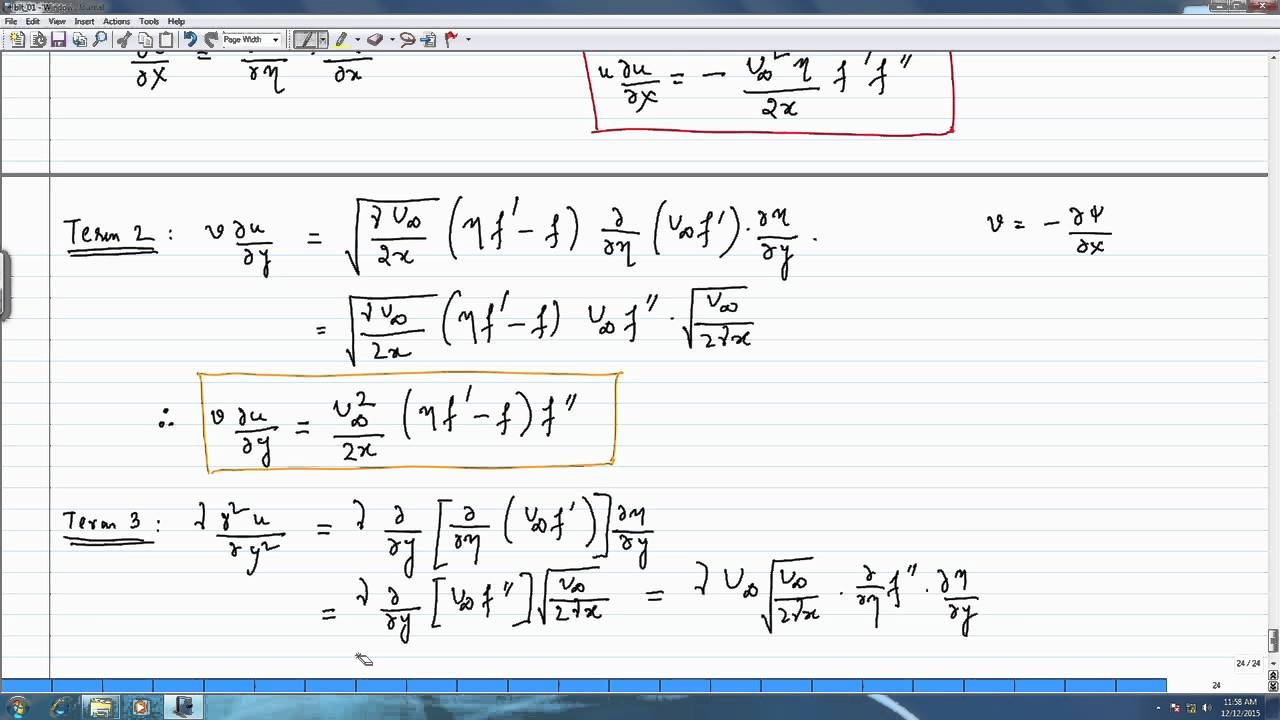 bit_01 - Windows Journal
File Edit View Insert Actions Tools Help
Page Width
∂x = ∂η · ∂x
u ∂u/∂x = - U∞² η / 2x f' f''
Term 2 : v ∂u/∂y = √(ν U∞ / 2x) (η f' - f) ∂/∂η (U∞ f') · ∂η/∂y .
v = - ∂ψ/∂x
= √(ν U∞ / 2x) (η f' - f) U∞ f'' · √(U∞ / 2νx)
∴ v ∂u/∂y = U∞² / 2x (η f' - f) f''
Term 3 : ν ∂²u/∂y² = ν ∂/∂y [∂/∂η (U∞ f')] ∂η/∂y
= ν ∂/∂y [U∞ f''] √(U∞ / 2νx) = ν U∞ √(U∞ / 2νx) · ∂/∂η f'' · ∂η/∂y
24 / 24
24
11:58 AM
12/12/2015